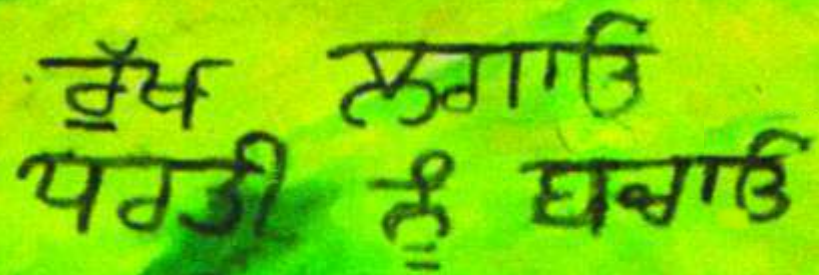 ਰੁੱਖ ਲਗਾਓ
ਧਰਤੀ ਨੂੰ ਬਚਾਓ